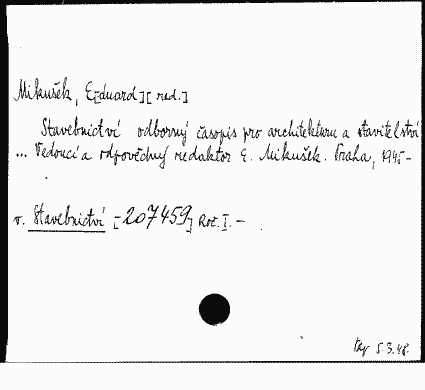 Mikušek, E[duard] [red.]
Stavebnictví odborný časopis pro architekturu a stavitelství
... Vedoucí a odpovědný redaktor E. Mikušek. Praha, 1945-
v. Stavebnictví [207459] Roč. I. -
5.3.48.